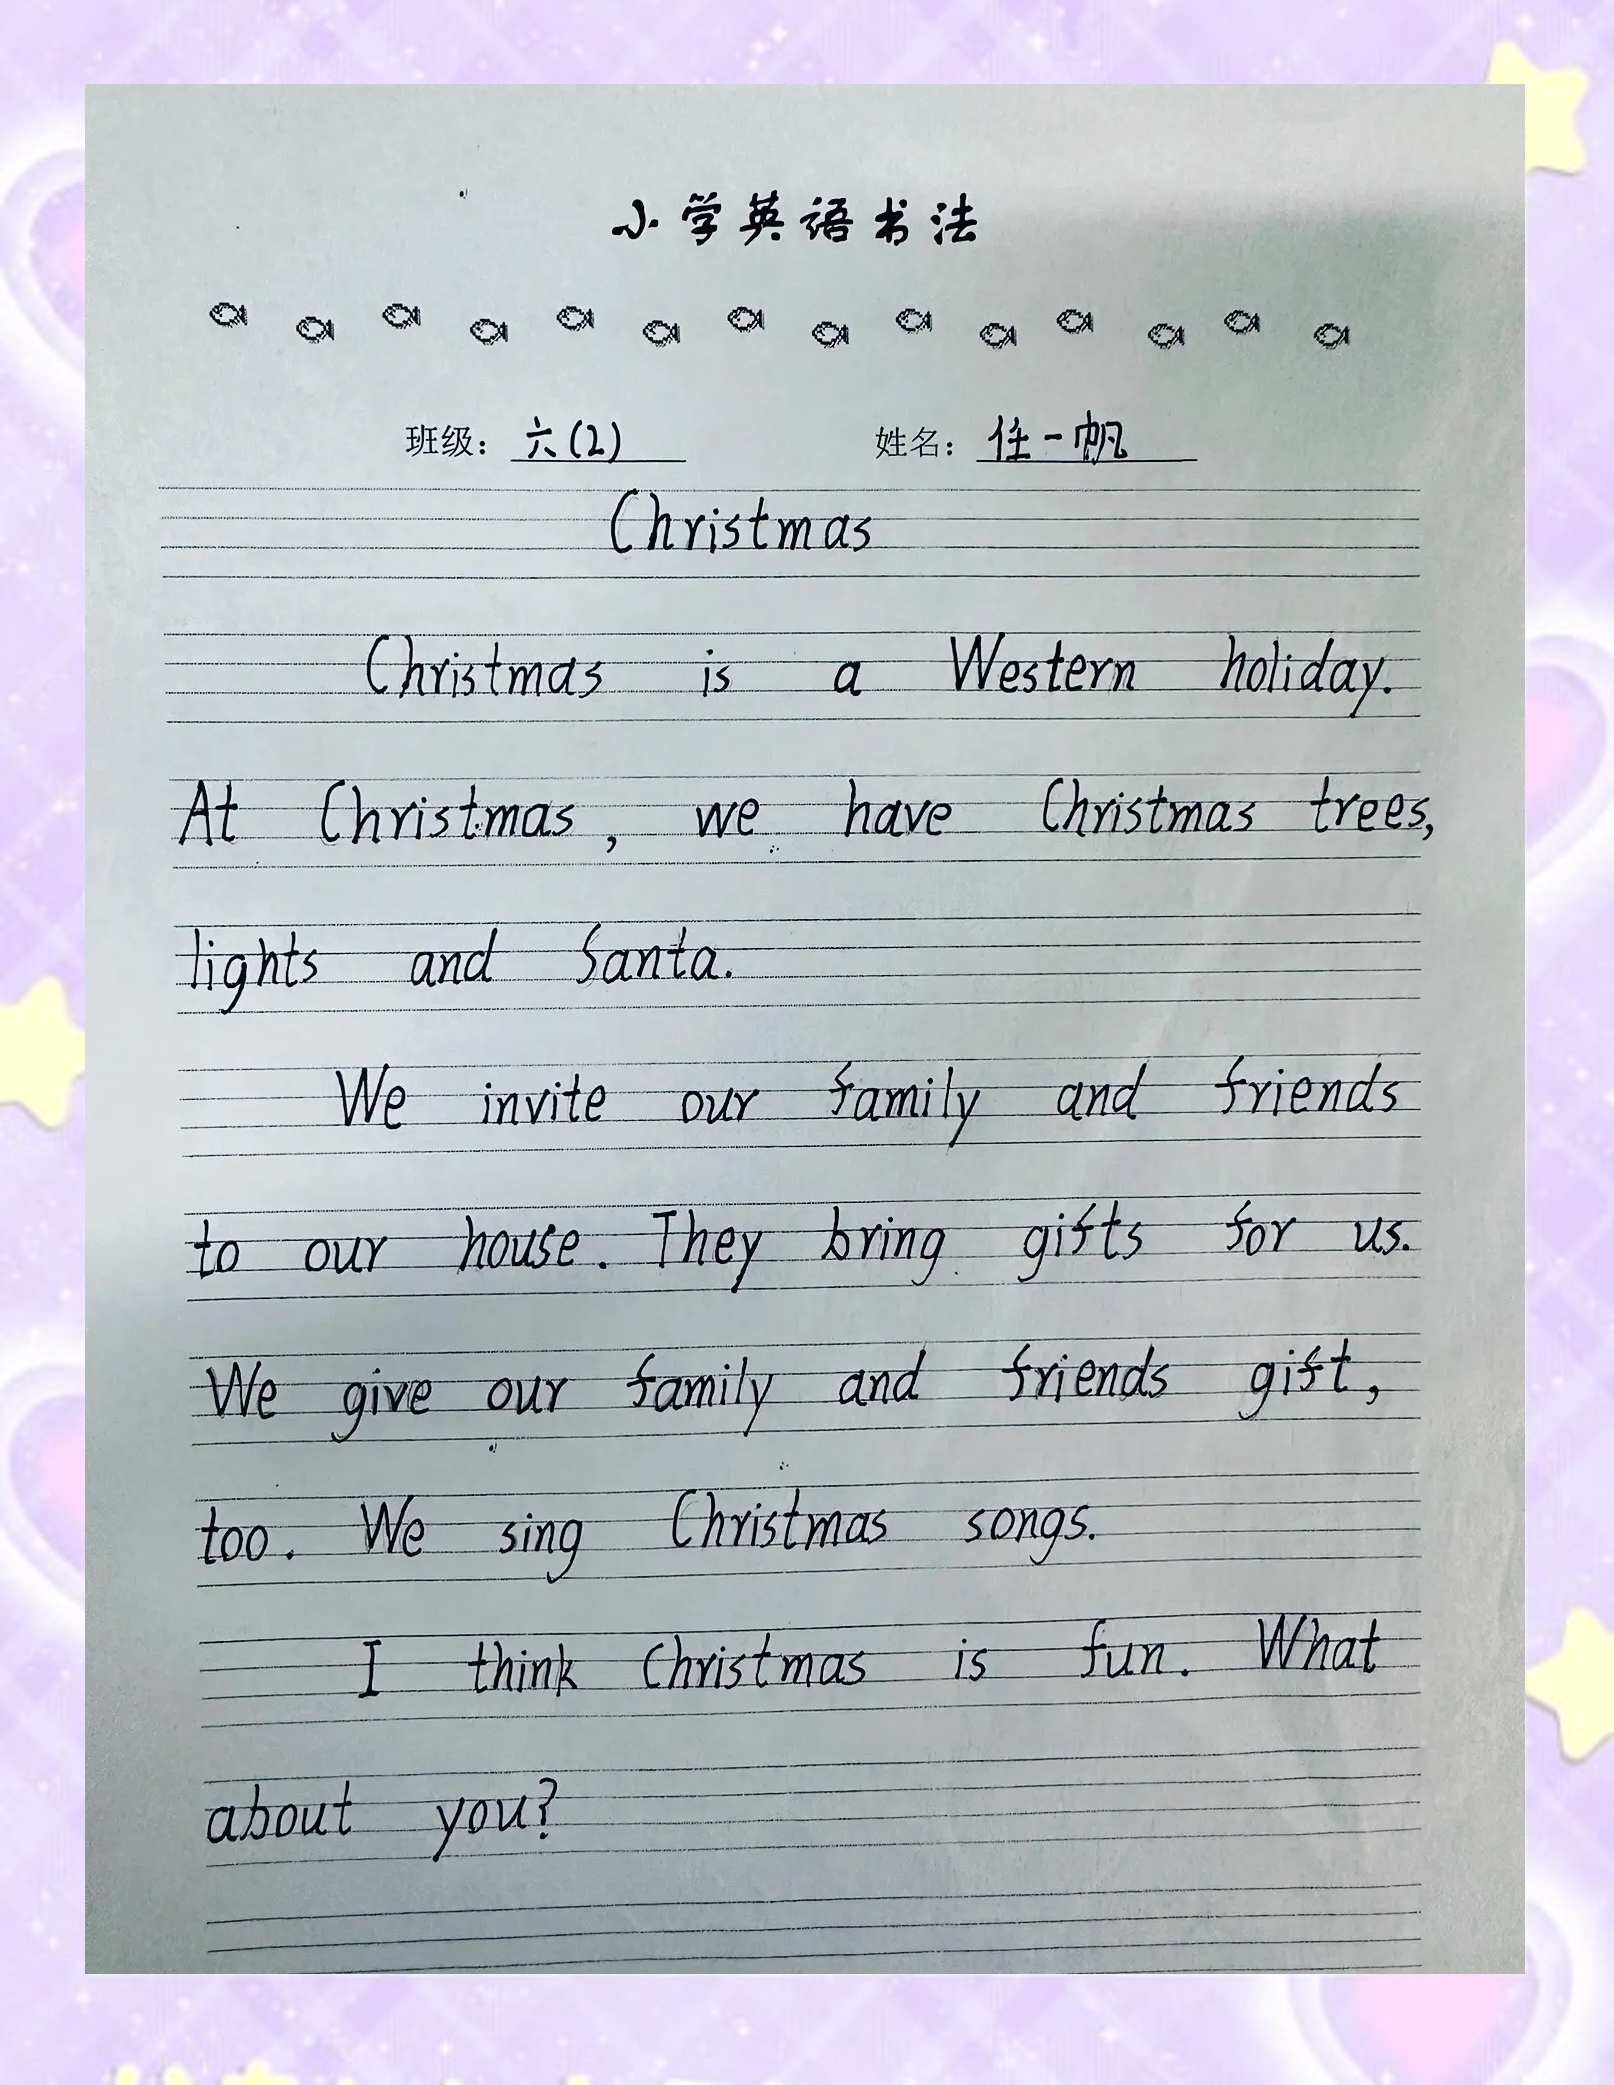 小学英语书法
班级：六(2) 姓名：任一帆
Christmas
Christmas is a Western holiday.
At Christmas, we have Christmas trees,
lights and Santa.
We invite our family and friends
to our house. They bring gifts for us.
We give our family and friends gift,
too. We sing Christmas songs.
I think Christmas is fun. What
about you?